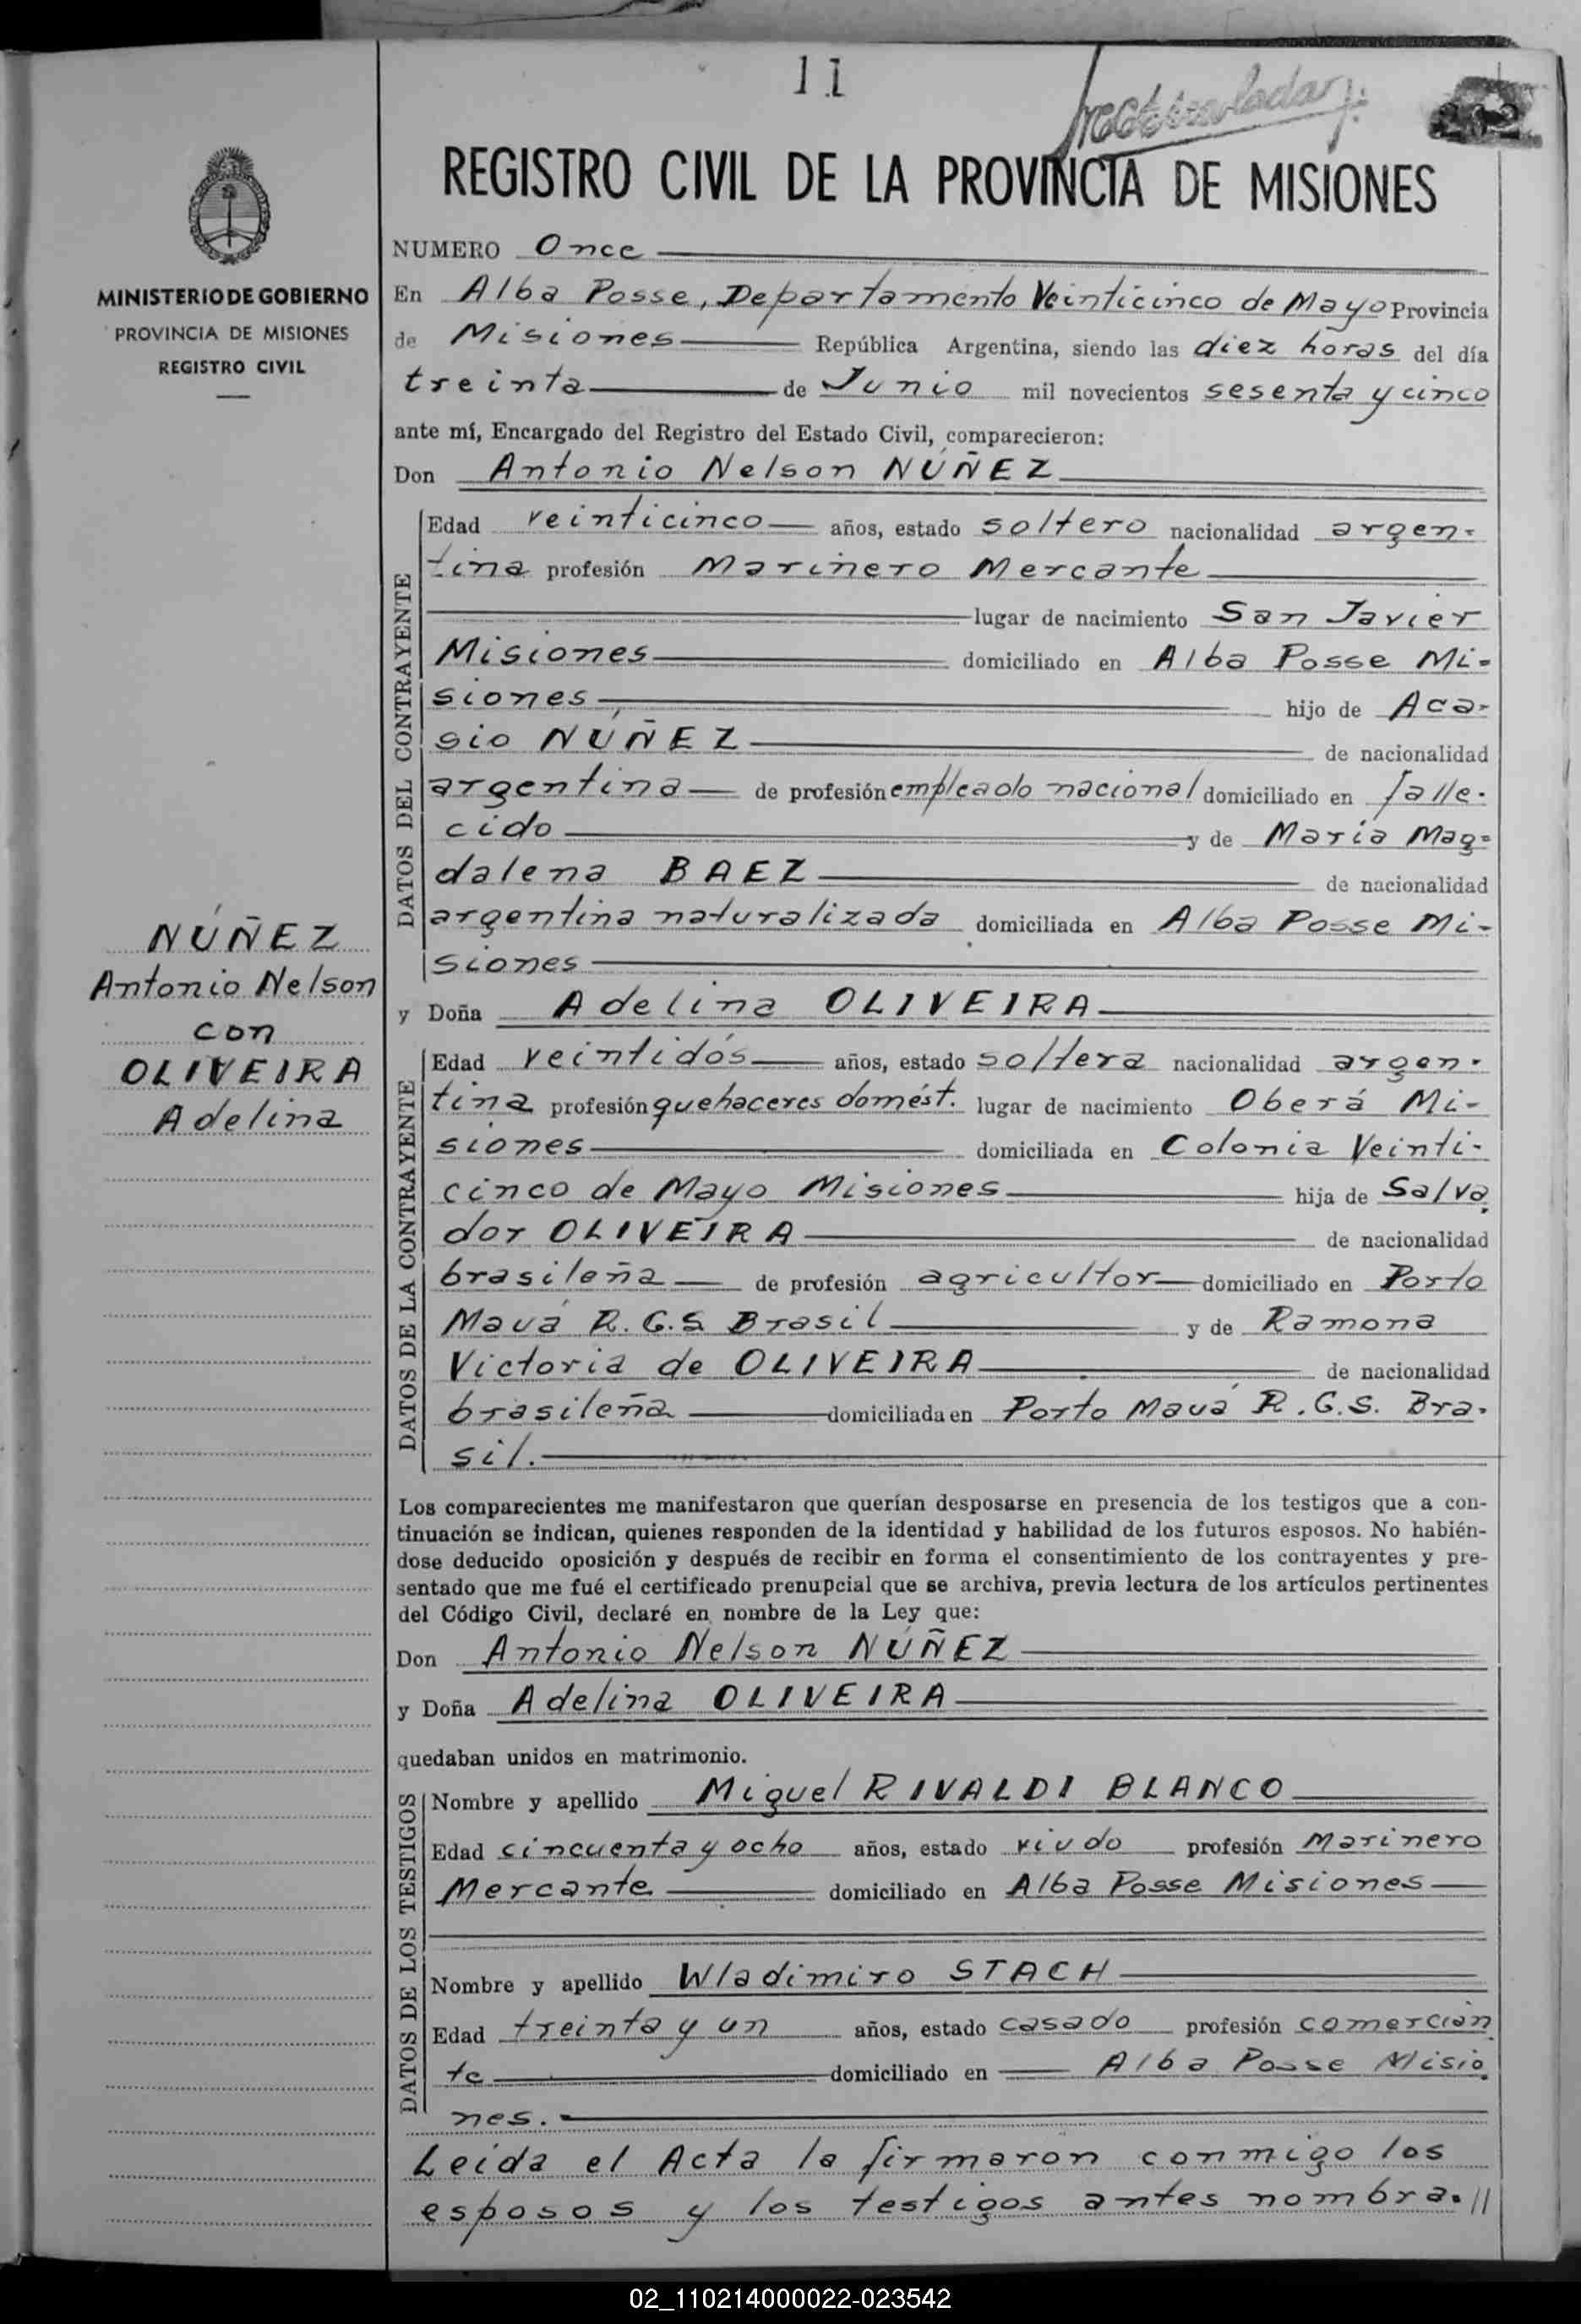 11
202
REGISTRO CIVIL DE LA PROVINCIA DE MISIONES
MINISTERIO DE GOBIERNO
PROVINCIA DE MISIONES
REGISTRO CIVIL
NUMERO Once
En Alba Posse, Departamento Veinticinco de Mayo Provincia
de Misiones República Argentina, siendo las diez horas del día
treinta de Junio mil novecientos sesenta y cinco
ante mí, Encargado del Registro del Estado Civil, comparecieron:
Don Antonio Nelson NÚÑEZ
DATOS DEL CONTRAYENTE
Edad veinticinco años, estado soltero nacionalidad argen-
tina profesión Marinero Mercante
lugar de nacimiento San Javier
Misiones domiciliado en Alba Posse Mi-
siones hijo de Aca-
sio NÚÑEZ de nacionalidad
argentina de profesión empleado nacional domiciliado en falle-
cido y de María Mag-
dalena BAEZ de nacionalidad
argentina naturalizada domiciliada en Alba Posse Mi-
siones
NÚÑEZ
Antonio Nelson
con
OLIVEIRA
Adelina
y Doña Adelina OLIVEIRA
DATOS DE LA CONTRAYENTE
Edad veintidós años, estado soltera nacionalidad argen-
tina profesión quehaceres domést. lugar de nacimiento Oberá Mi-
siones domiciliada en Colonia Veinti-
cinco de Mayo Misiones hija de Salva
dor OLIVEIRA de nacionalidad
brasileña de profesión agricultor domiciliado en Porto
Mauá R.G.S Brasil y de Ramona
Victoria de OLIVEIRA de nacionalidad
brasileña domiciliada en Porto Mauá R.G.S. Bra-
sil.
Los comparecientes me manifestaron que querían desposarse en presencia de los testigos que a con-
tinuación se indican, quienes responden de la identidad y habilidad de los futuros esposos. No habién-
dose deducido oposición y después de recibir en forma el consentimiento de los contrayentes y pre-
sentado que me fué el certificado prenupcial que se archiva, previa lectura de los artículos pertinentes
del Código Civil, declaré en nombre de la Ley que:
Don Antonio Nelson NÚÑEZ
y Doña Adelina OLIVEIRA
quedaban unidos en matrimonio.
DATOS DE LOS TESTIGOS
Nombre y apellido Miguel RIVALDI BLANCO
Edad cincuenta y ocho años, estado viudo profesión Marinero
Mercante domiciliado en Alba Posse Misiones
Nombre y apellido Wladimiro STACH
Edad treinta y un años, estado casado profesión comercian
te domiciliado en Alba Posse Misio
nes.
Leída el Acta la firmaron conmigo los
esposos y los testigos antes nombra-//
02_110214000022-023542